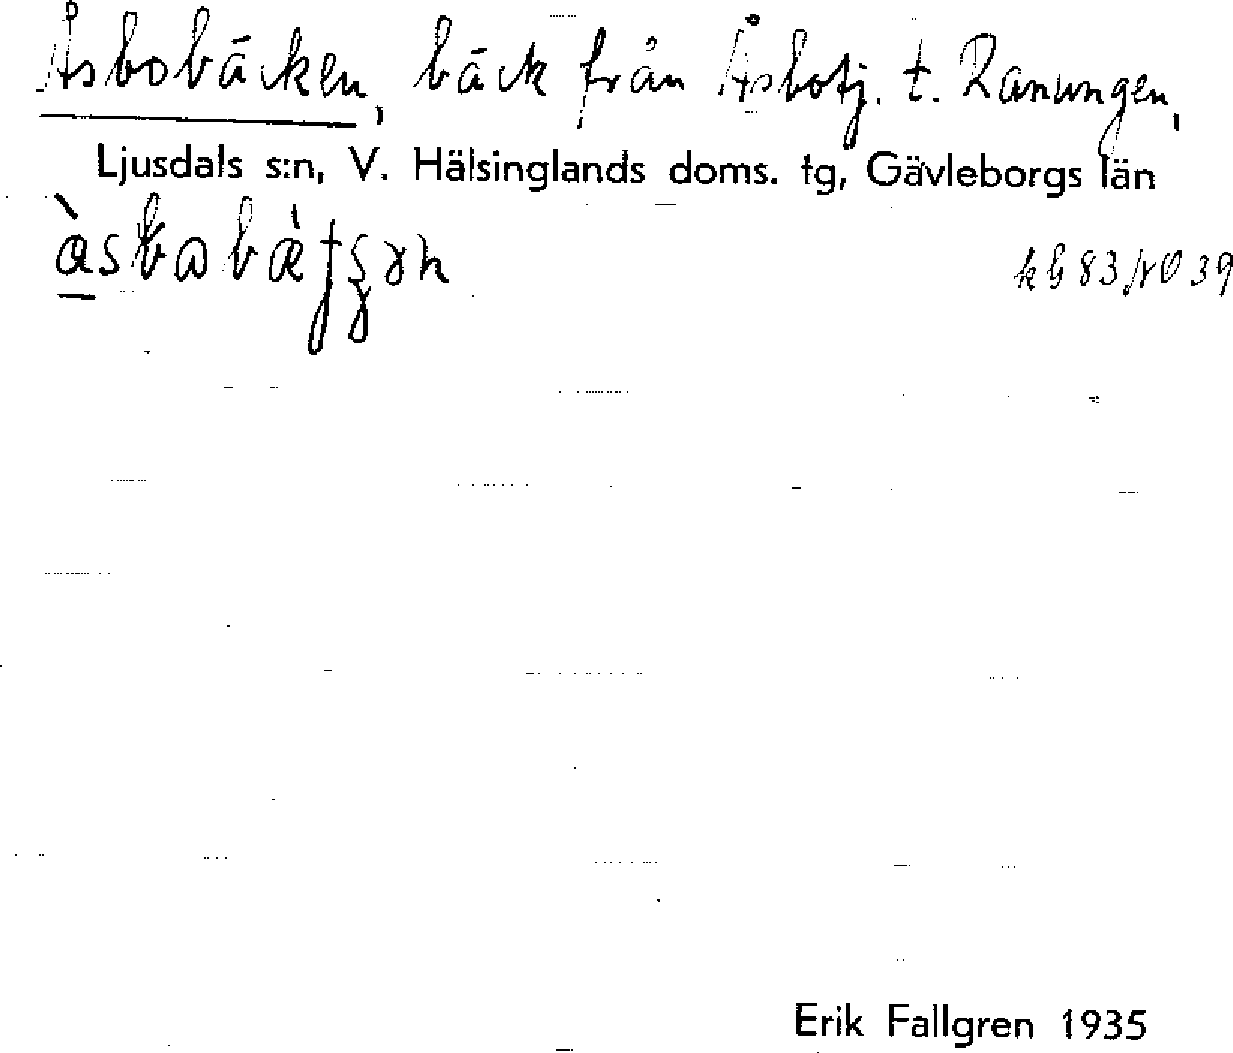 Åsbobäcken, bäck från Åsbotj. t. Ranungen,
Ljusdals s:n, V. Hälsinglands doms. tg, Gävleborgs län
Erik Fallgren 1935